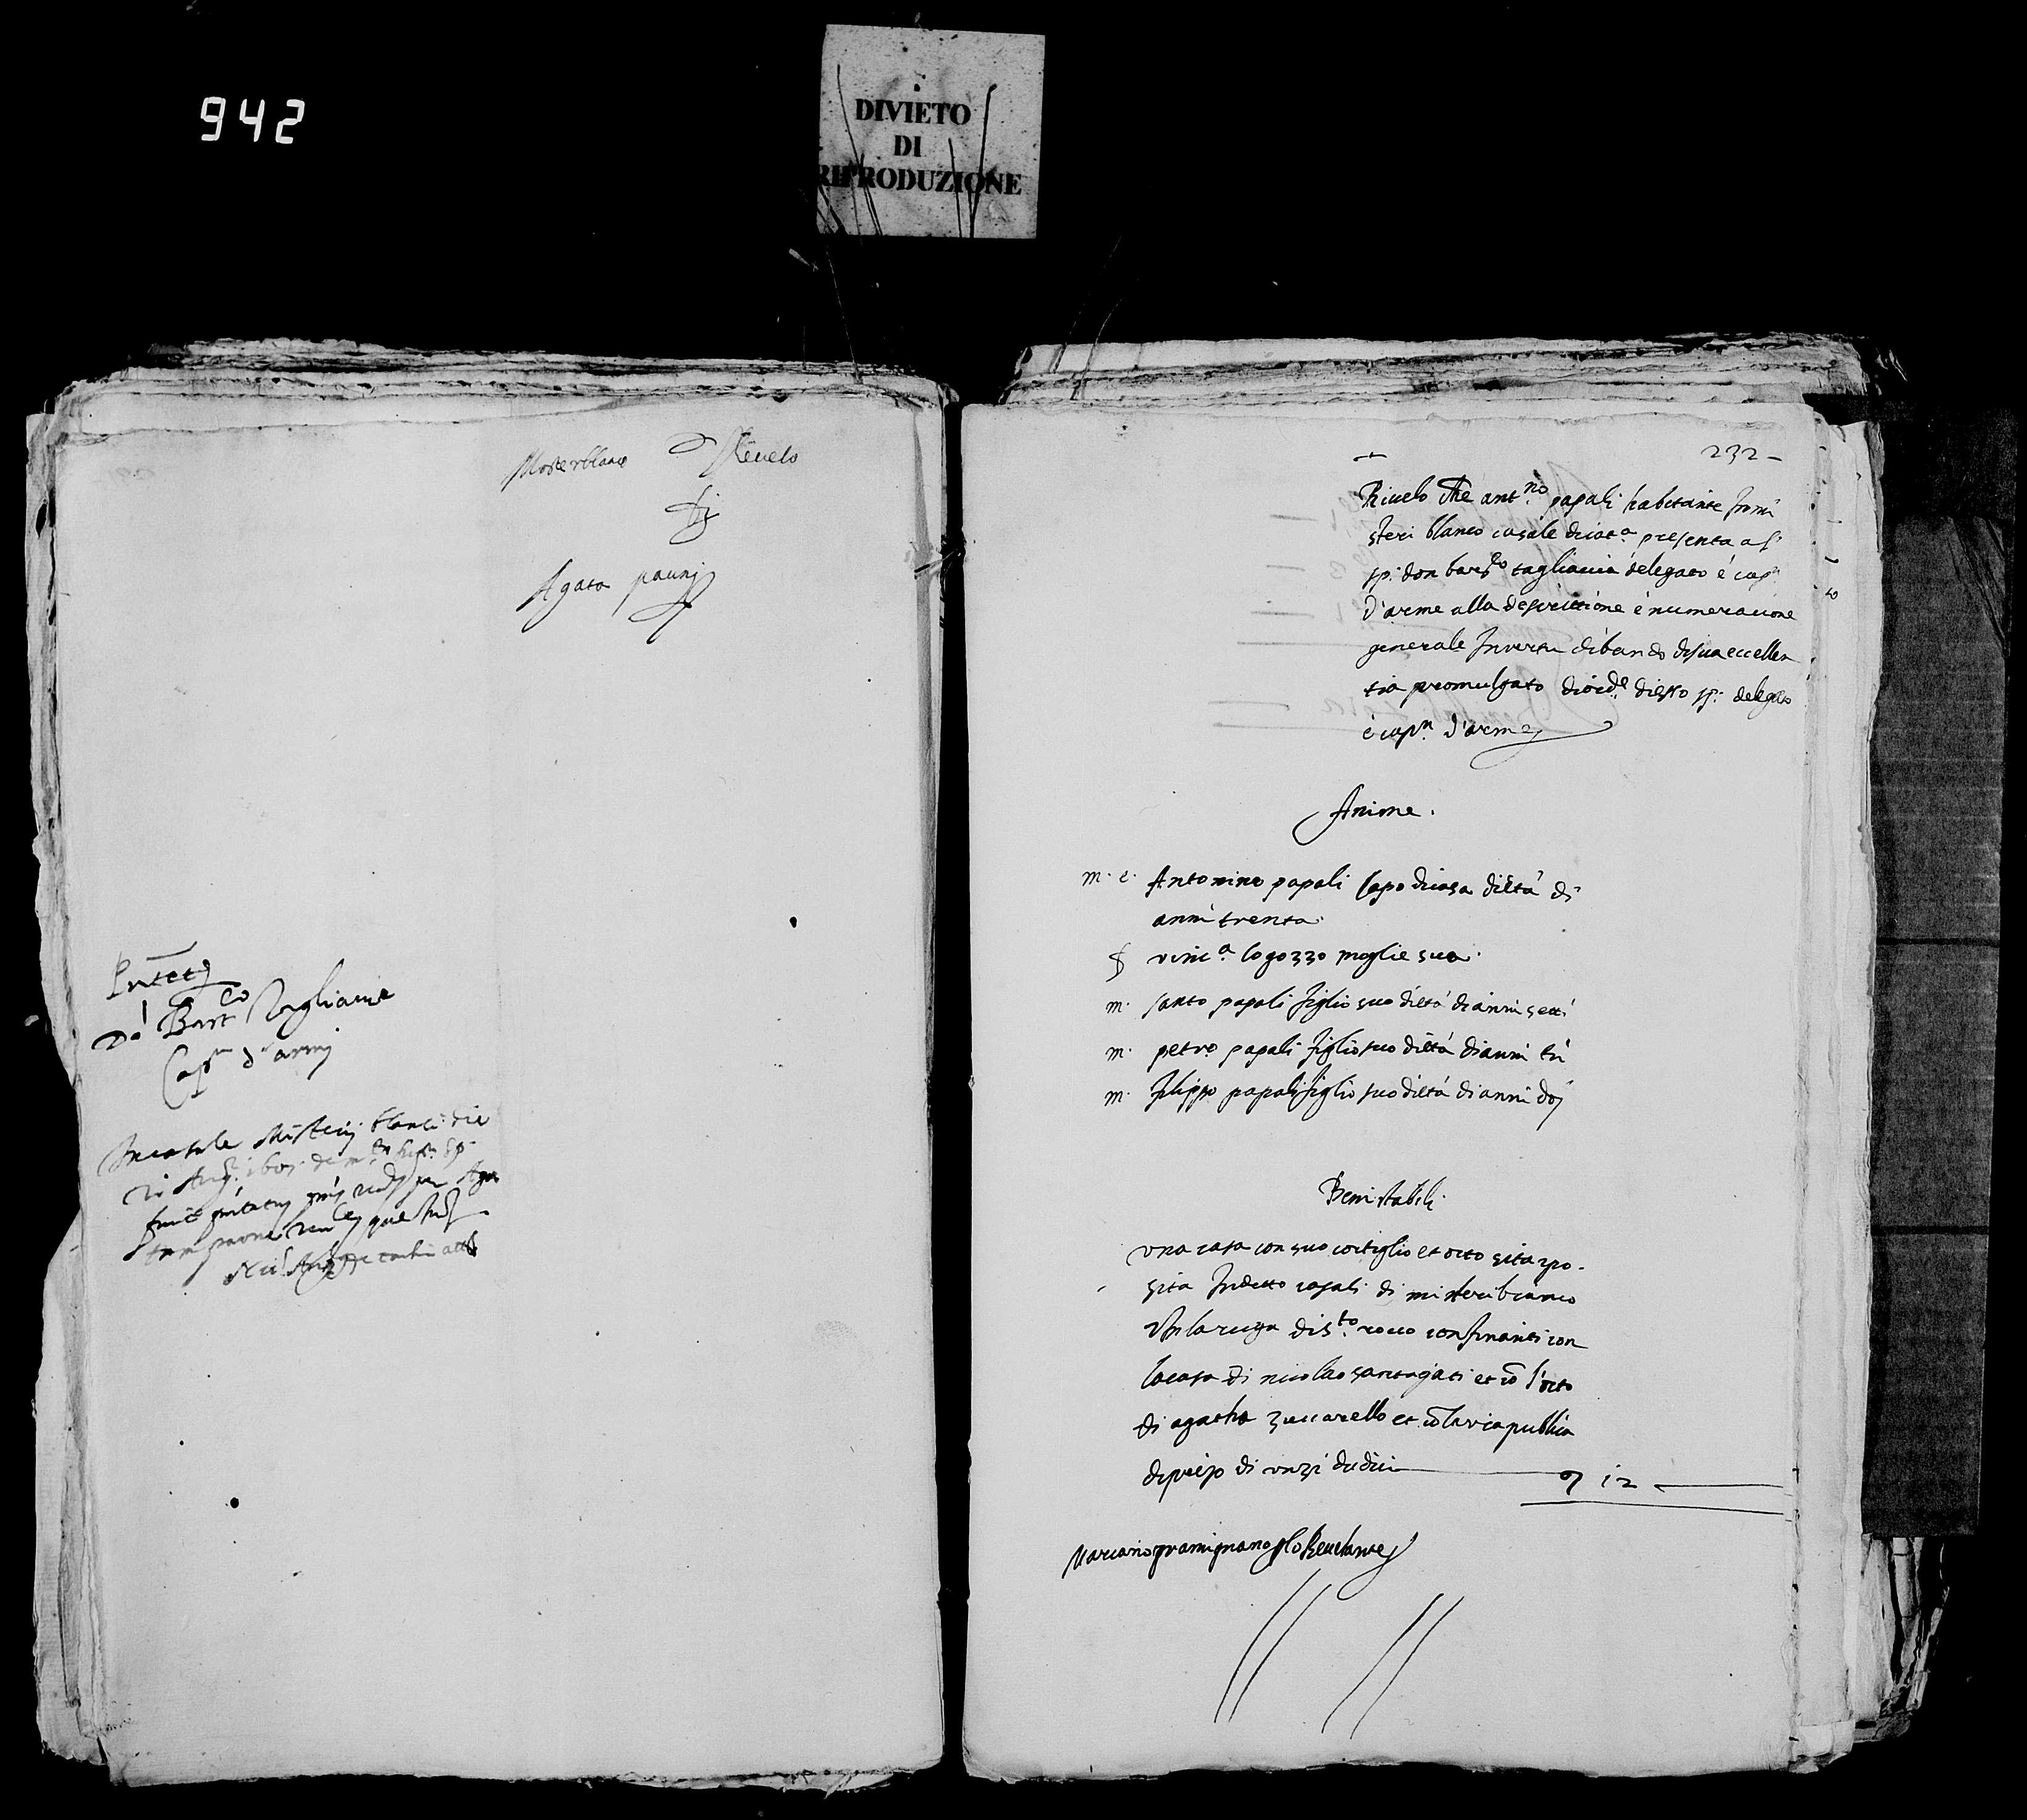 942
DIVIETO
DI
RIPRODUZIONE
Misterblanco Revelo
di
Agata pauni
Don Bart.co Tagliavia
Cap.n d'armi
In casale Misterij blanci die
232
Rivelo che ant.no papali habitante In mi
steri blanco casale di cat.a presenta a
sp. don bart.eo tagliavia delegato è cap.n
d'arme alla descrittione è numeracione
generale In vertu di bando di sua eccellen
tia promulgato di ord.e di esso sp. delegato
è cap.n d'arme
Anime.
m. c. Antonino papali Capo di casa di età di
anni trenta.
f vinc.a logozzo moglie sua.
m. santo papali figlio suo di età di anni setti
m. petro papali figlio suo di età di anni tri
m. filippo papali figlio suo di età di anni doi
Beni stabili.
una casa con suo cortiglio et orto sita e po-
sita In detto casali di misteribianco
In la ruga di s.to rocco confinanti con
la casa di nicolao santagati et cō l'orto
di agatha zuccarello et cō la via publica
di prezo di unzi dudici 12
Mariano gramignano p lo Revelante